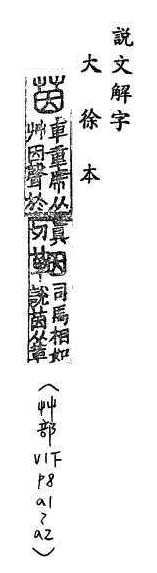 說文解字
大徐本
茵
車重席从
艸因聲於
真
切
鞇
司馬相如
說茵从革
(艸部V1下P8a1~a2)